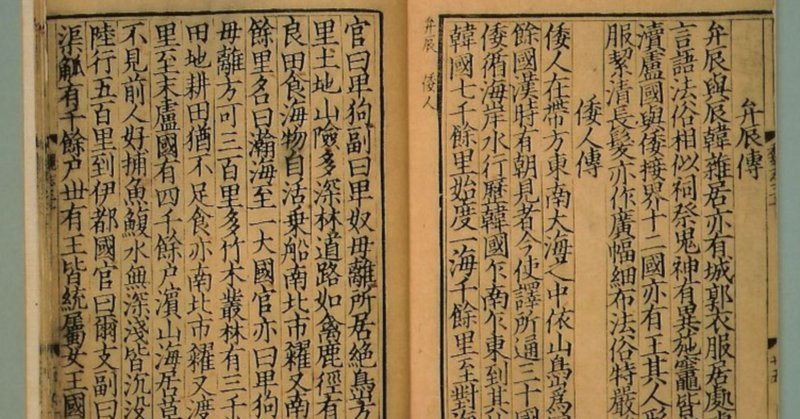 弁辰傳
弁辰與辰韓雜居亦有城郭衣服居處
言語法俗相似祠祭鬼神有異施竈皆
瀆盧國與倭接界十二國亦有王其人形
服絜清長髮亦作廣幅細布法俗特嚴
倭人傳
倭人在帶方東南大海之中依山㠀爲
餘國漢時有朝見者今使譯所通三十國
倭循海岸水行歷韓國乍南乍東到其
韓國七千餘里始度一海千餘里至對
弁辰 倭人
官曰卑狗副曰卑奴毋離所居絶㠀方
里土地山險多深林道路如禽鹿徑有
良田食海物自活乗船南北市糴又南
餘里名曰瀚海至一大國官亦曰卑狗
毋離方可三百里多竹木叢林有三千
田地耕田猶不足食亦南北市糴又渡
里至末盧國有四千餘户濱山海居草
不見前人好捕魚鰒水無深淺皆沉没
陸行五百里到伊都國官曰爾支副曰
渠觚有千餘户丗有王皆統屬女王國